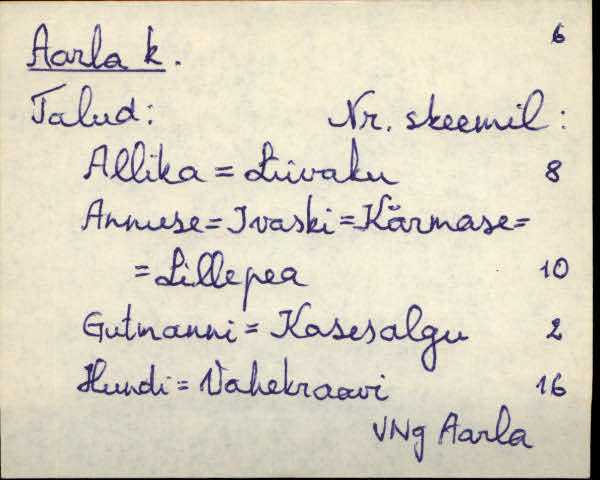 6
Aarla k.
Talud: Nr. skeemil:
Allika = Liivaku 8
Annuse = Ivaski = Kärmase =
= Lillepea 10
Gutmanni = Kasesalgu 2
Hundi = Vahekraavi 16
VNg Aarla